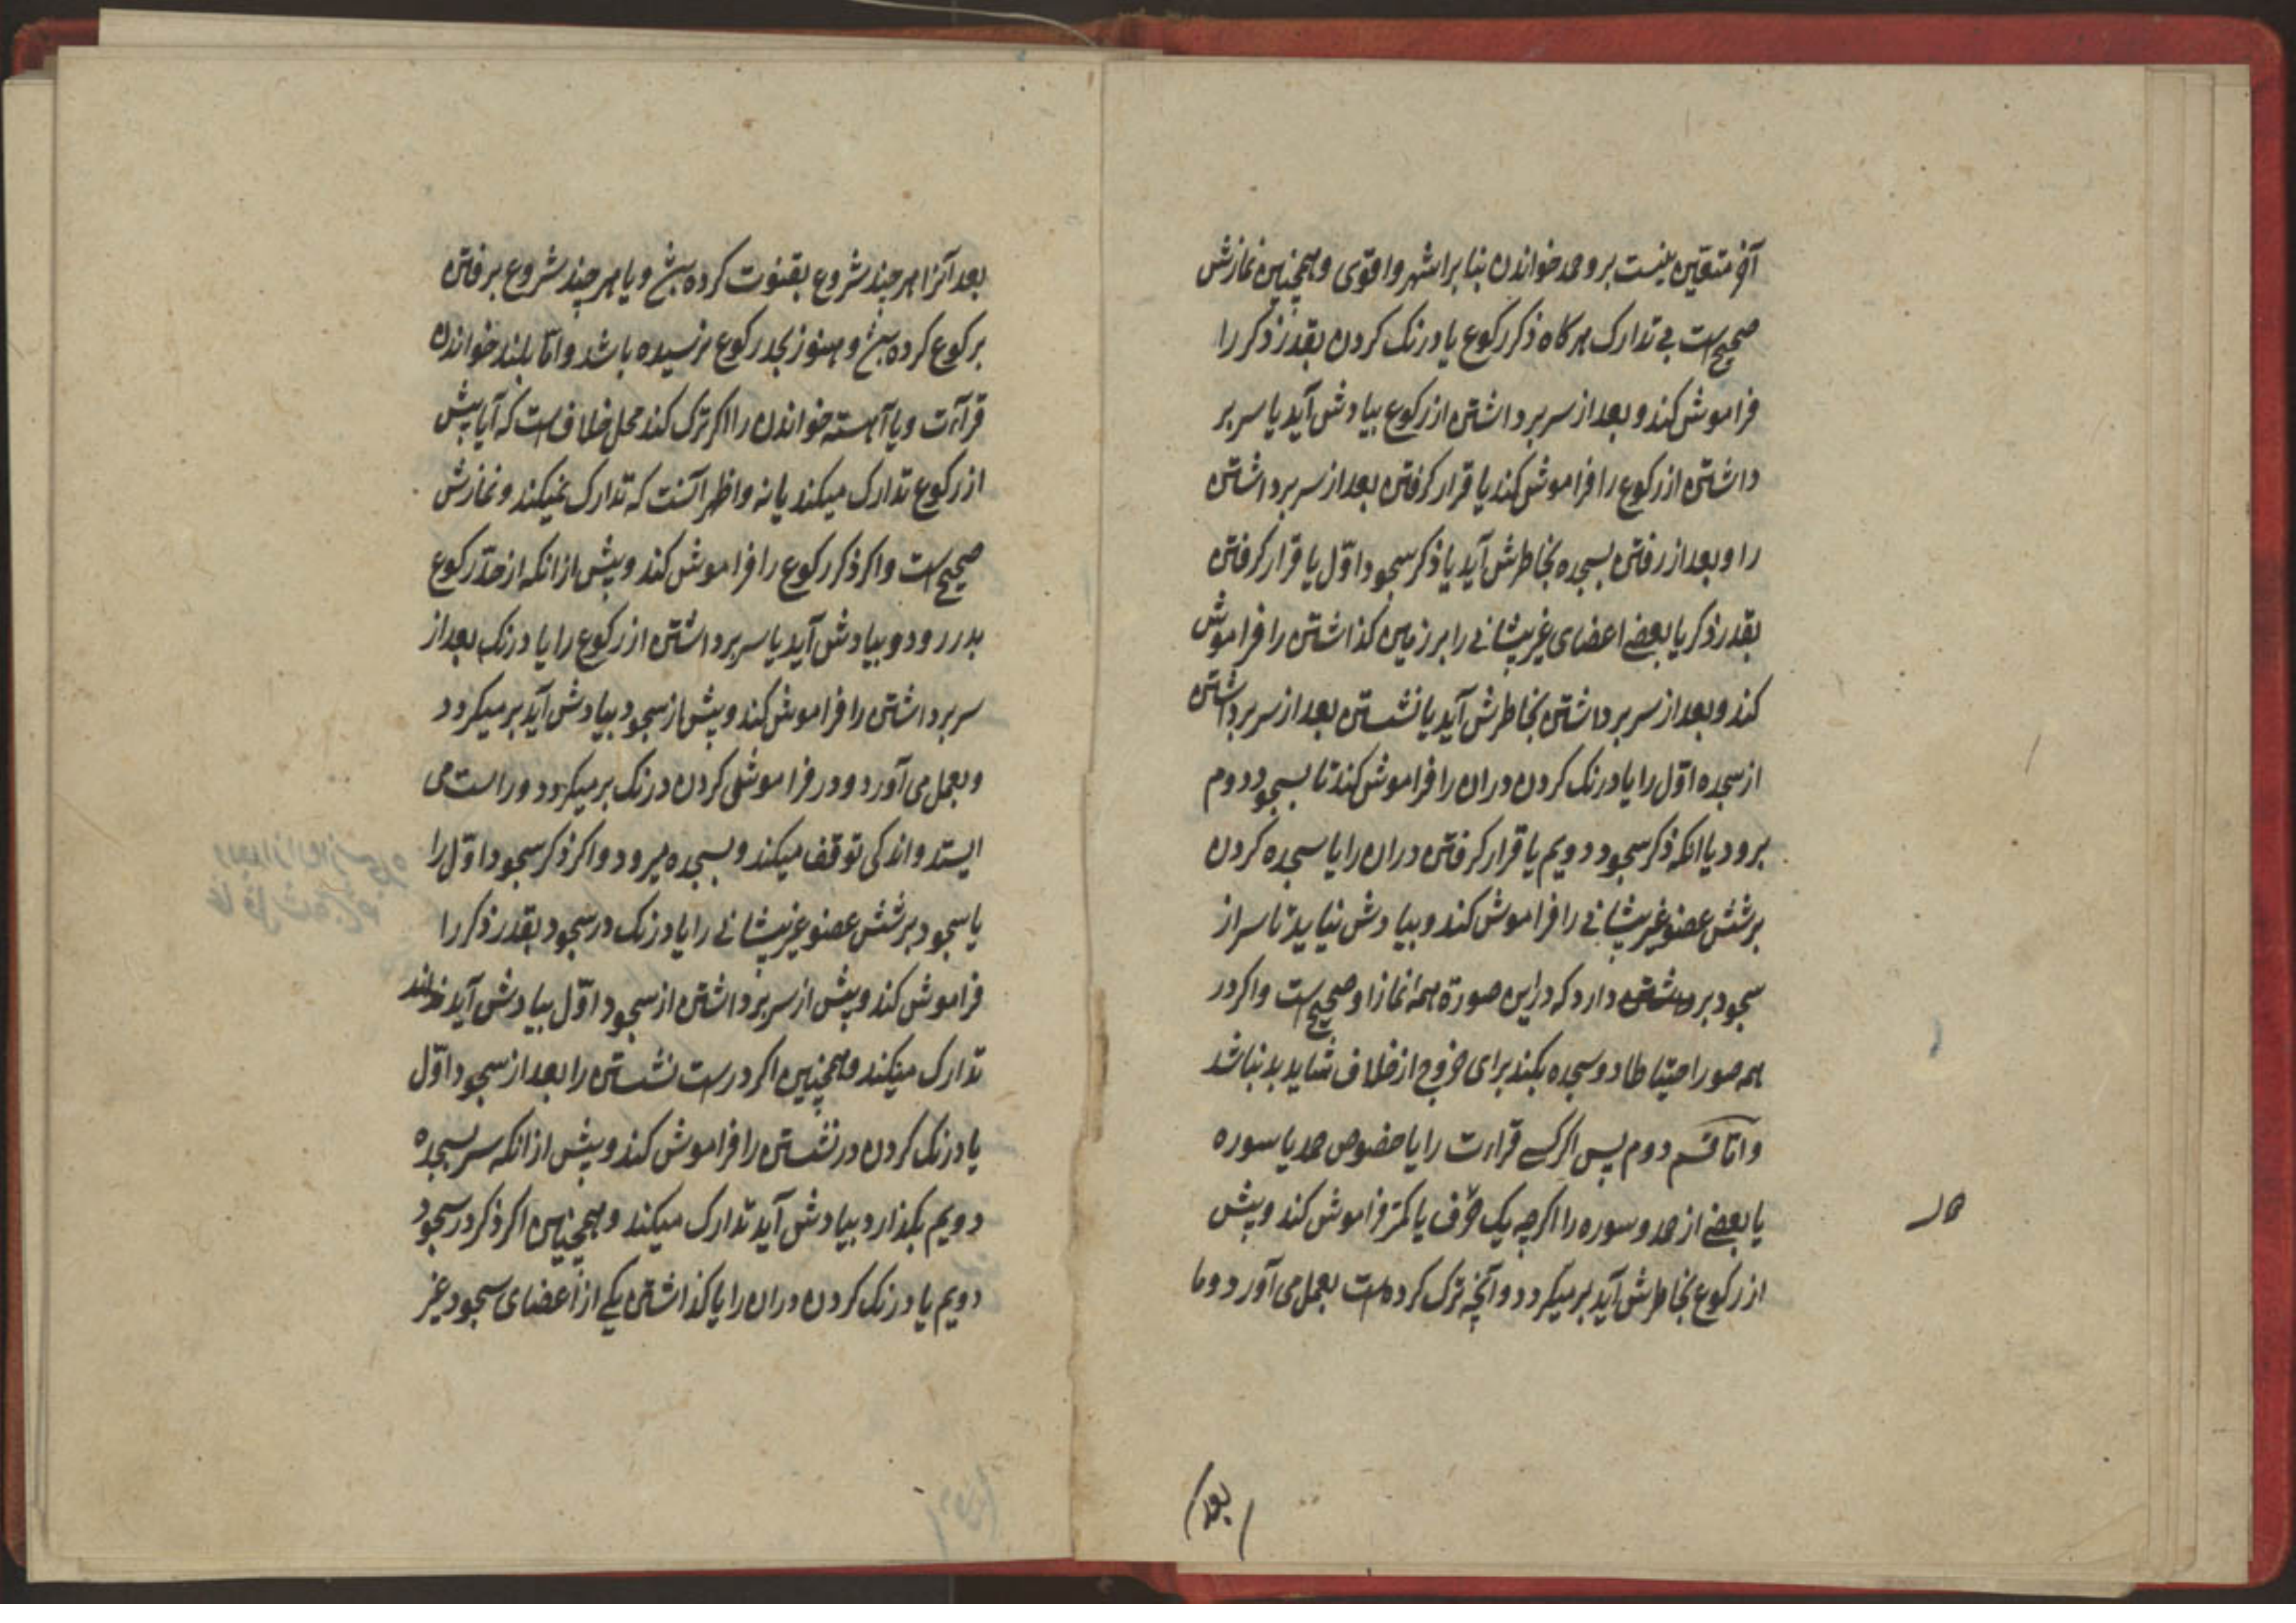 آخر متعین نیست برو حمد خواندن بنا بر اشهر و اقوی و همچنین نمازش
صحیح است بی تدارک هر کاه ذکر رکوع یا درنک کردن بقدر ذکر را
فراموش کند و بعد از سر برداشتن از رکوع بیادش آید یا سر بر
داشتن از رکوع را فراموش کند یا قرار کرفتن بعد از سر برداشتن
را و بعد از رفتن بسجده بخاطرش آید یا ذکر سجود اوّل یا قرار کرفتن
بقدر ذکر یا بعضی اعضای غیر پیشانی را بر زمین کذاشتن را فراموش
کند و بعد از سر برداشتن بخاطرش آید یا نشستن بعد از سر برداشتن
از سجده اوّل را یا درنک کردن دران را فراموش کند تا بسجود دوم
برود یا انکه ذکر سجود دویم یا قرار کرفتن دران را یا سجده کردن
بر شش عضو غیر پیشانی را فراموش کند و بیادش نیاید تا سر از
سجود برداشتن دارد که دراین صورة همه نماز او صحیح است و اکر در
همه صور احتیاطا دو سجده بکند برای خروج از خلاف شاید بد نباشد
و امّا قسم دوم پس اکر کسی قراءت را یا خصوص حمد یا سوره
یا بعضی از حمد و سوره را اکرچه یک حرف یا کمتر فراموش کند و پیش
از رکوع بخاطرش آید بر میکردد و آنچه ترک کرده است بعمل می آورد و ما
بعد
بعد آنرا هر چند شروع بقنوت کرده باشد و یا هر چند شروع برفتن
برکوع کرده باشد و هنوز بحد رکوع نرسیده باشد و امّا بلند خواندن
قراءت و یا آهسته خواندن را اکر ترک کند محل خلاف است که آیا پیش
از رکوع تدارک میکند یا نه و اظهر آنست که تدارک نمیکند و نمازش
صحیح است و اکر ذکر رکوع را فراموش کند و پیش از انکه از حدّ رکوع
بدر رود و بیادش آید یا سر برداشتن از رکوع را یا درنک بعد از
سر برداشتن را فراموش کند و پیش از سجود بیادش آید بر میکردد
و بعمل می آورد و در فراموشی کردن درنک بر میکردد و راست می
ایستد و اندکی توقف میکند و بسجده میرود و اکر ذکر سجود اوّل را
یا سجود بر شش عضو غیر پیشانی را یا درنک در سجود بقدر ذکر را
فراموش کند و پیش از سر برداشتن از سجود اوّل بیادش آید
تدارک میکند و همچنین اکر درست نشستن را بعد از سجود اوّل
یا درنک کردن در نشستن را فراموش کند و پیش از انکه سر بسجده
دویم بکذارد بیادش آید تدارک میکند و همچنین اکر ذکر در سجود
دویم یا درنک کردن دران را یا کذاشتن یکی از اعضای سجود غیر